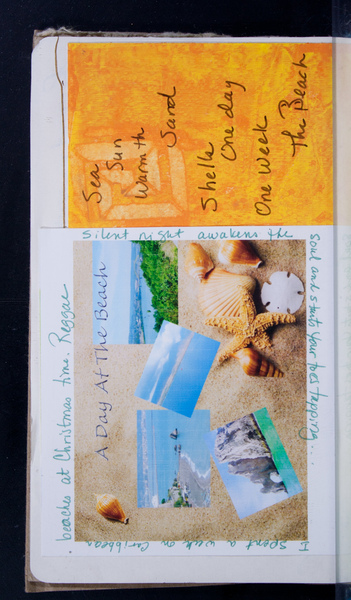 Sea
Sun
Warmth
Sand
Shells
One day
One Week
The Beach
A Day At The Beach
I spent a week on Caribbean
beaches at Christmas time. Reggae
Silent night awakens the
soul and starts your toes tapping...